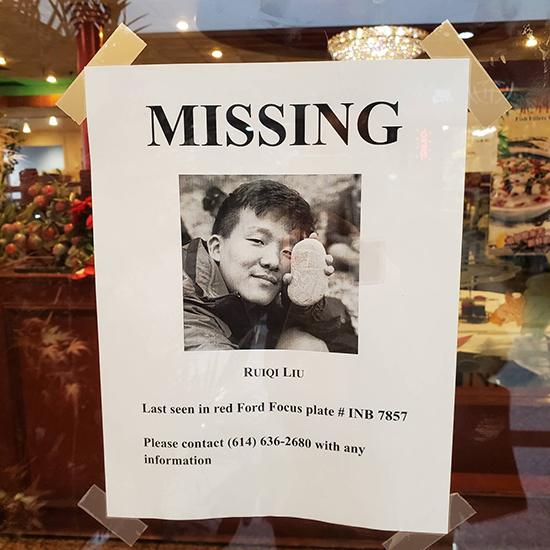 MISSING
RUIQI LIU
Last seen in red Ford Focus plate # INB 7857
Please contact (614) 636-2680 with any
information
Fish Fillets